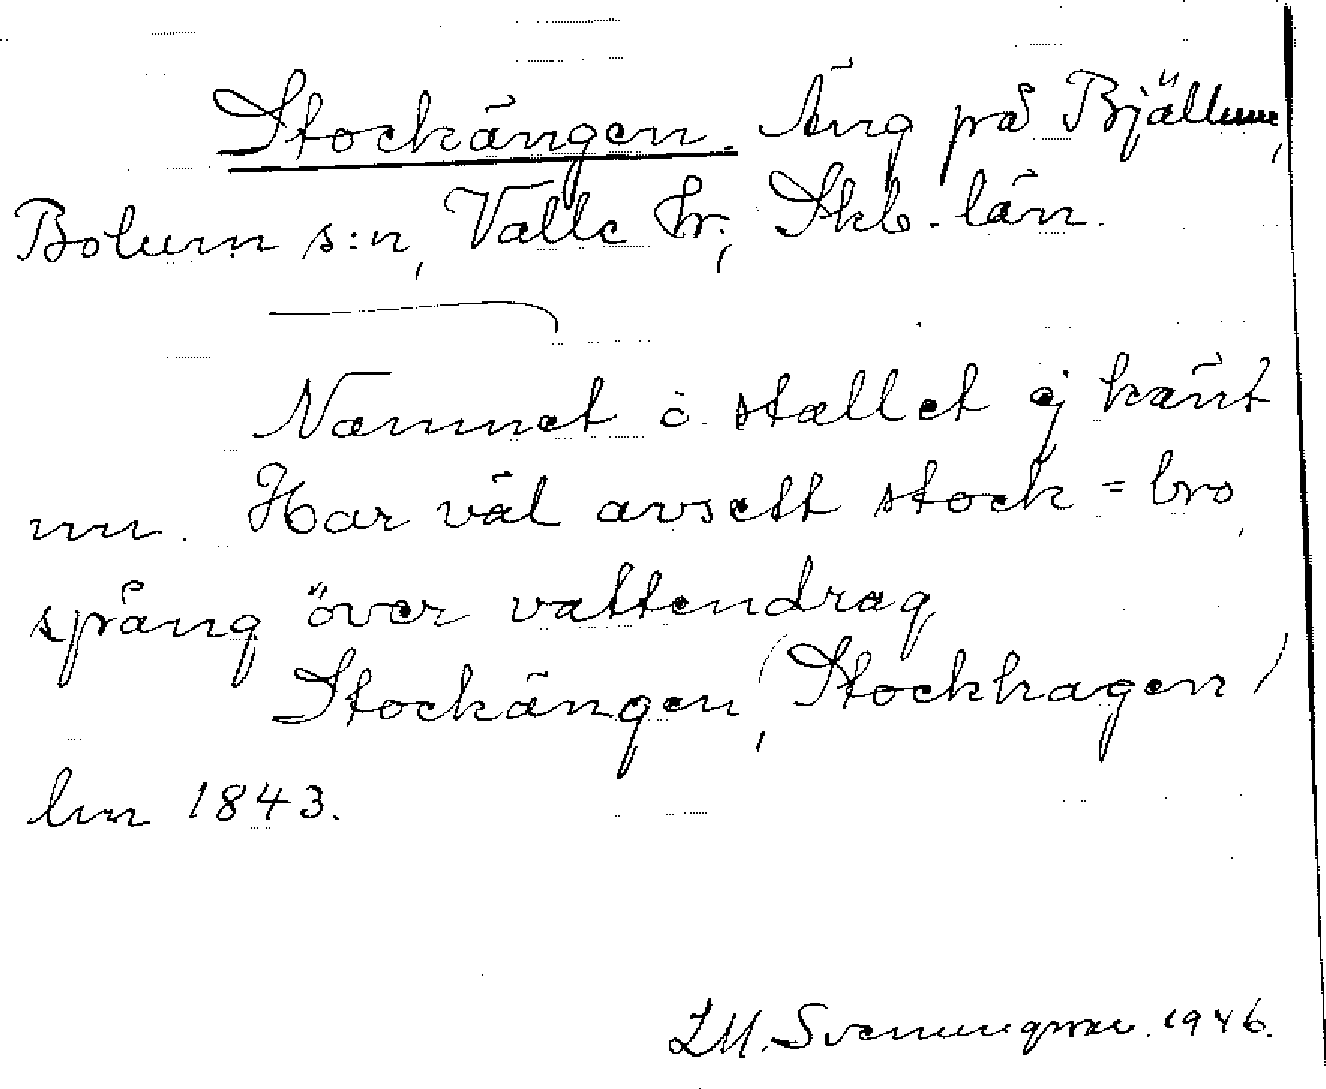 Stockängen. Äng på Bjällum,
Bolum s:n, Valle hr; Skb. län.
Namnet o. stället ej känt
nu. Har väl avsett stock = bro,
spång över vattendrag
Stockängen, (Stockhagen)
lm 1843.
L.M. Svenungsson. 1946.